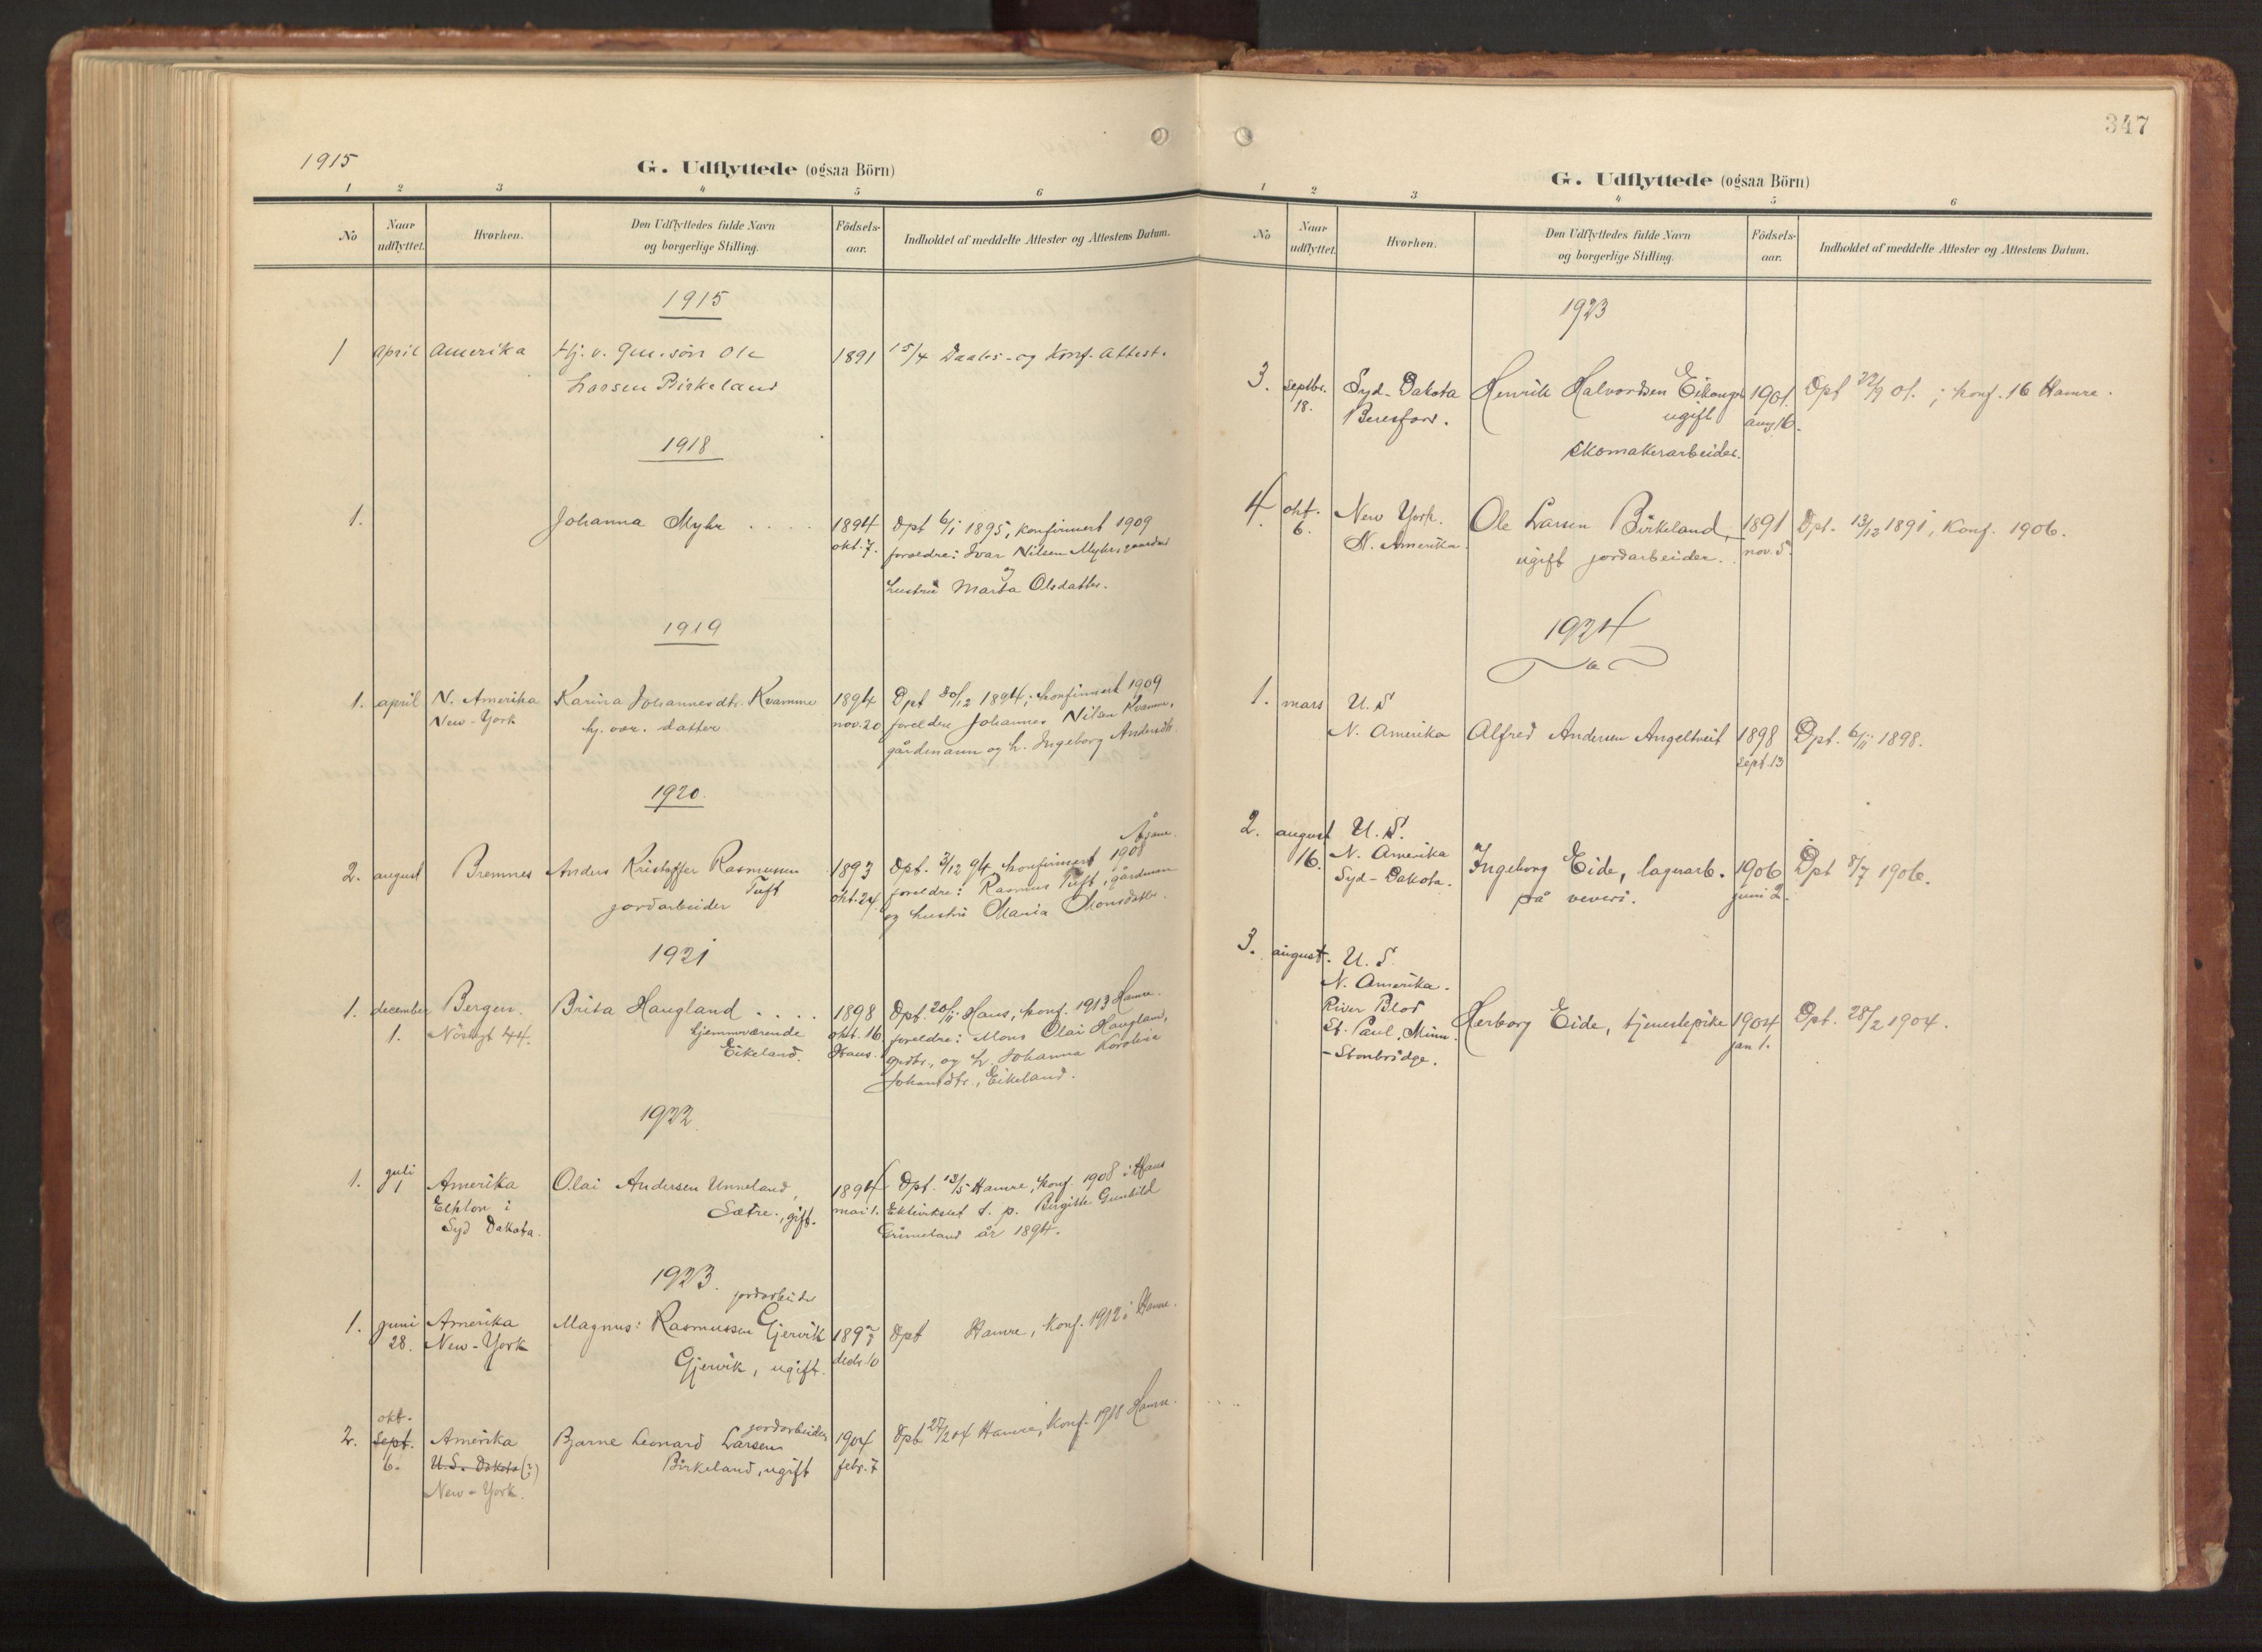 1915
G. Udflyttede (ogsaa Börn)
1 2 3 4 5 6
No
Naar udflyttet.
Hvorhen.
Den Udflyttedes fulde Navn og borgerlige Stilling.
Födsels-aar.
Indholdet af meddelte Attester og Attestens Datum.
1915
1 april Amerika Hj. v. gm. sön Ole 1891 15/4 Daabs- og Konf. Attest.
Larsen Birkeland
1918
1. Johanna Myhr . . . . 1894 Dpt 6/1 1895, konfirmert 1909
okt. 7. foreldre: Ivar Nilsen Myhr, gaardm
og
hustru Marta Olsdatter.
1919
1. april N. Amerika Karina Johannesdtr. Kvamme 1894 Dpt 30/12 1894; konfirmert 1909
New-York hj. vær. datter nov. 20 foreldre Johannes Nilsen Kvamme,
gårdmann og h. Ingeborg Andersdtr.
1920.
Åsane.
2. august Bremnes Anders Kristoffer Rasmussen 1893 Dpt. 3/12 94 konfirmert 1908
Tuft okt. 24. foreldre: Rasmus Tuft, gårdman
jordarbeider og hustru Maria Monsdatter.
1921
1. december Bergen. Brita Haugland . . . . 1898 Dpt. 20/11 Haus, konf. 1913 Hamre.
1. Nöstegt 44. hjemmværende okt. 16 foreldre: Mons Olai Haugland,
Eikeland. Haus. grdbr., og h. Johanna Karolina
Johansdtr., Eikeland.
1922.
1. juli Amerika Olai Andersen Unneland, 1894 Dpt. 13/5 Hamre, konf. 1908 i Haus
1 Elkton i Sætre., gift. mai 1. Ektevikslet f. p. Birgitte Gunhild
Syd Dakota. Grimeland år 1894.
1923.
jordarbeider
1. juni Amerika Magnus: Rasmussen Gjervik 189 Dpt Hamre, konf. 1912 i Hamre.
28. New-York Gjervik, ugift. decbr. 10
okt. jordarbeider
2. sept. Amerika Bjarne Leonard Larsen 1904 Dpt 27/2 04 Hamre, konf. 1918 Hamre.
6. U.S. Dakota (?) Birkeland, ugift febr. 7
New-York.
347
G. Udflyttede (ogsaa Börn)
1 2 3 4 5 6
No
Naar udflyttet.
Hvorhen.
Den Udflyttedes fulde Navn og borgerlige Stilling.
Födsels-aar.
Indholdet af meddelte Attester og Attestens Datum.
1923
3. septbr. Syd-Dakota Henrik Halvordsen Eikanger 1901. Dpt 22/9 01. ; konf. 16 Hamre.
18. Beresford. ugift aug 16.
skomakerarbeider.
4. okt. New York. Ole Larsen Birkeland, 1891 Dpt. 13/12 1891, Konf. 1906.
6. N. Amerika. ugift jordarbeider. nov. 5.
1924
1. mars U.S
N. Amerika Alfred Andersen Angeltveit 1898 Dpt. 6/11 1898.
sept. 13
2. august U.S.
16. N. Amerika Ingeborg Eide, lagerarb. 1906 Dpt 8/7 1906.
Syd-Dakota. på veveri. juni 2.
3. august. U.S
N. Amerika.
River Blod
St. Paul, Minn. Herborg Eide, tjenestepike 1904 Dpt. 28/2 1904.
- Stonbridge. jan 1.